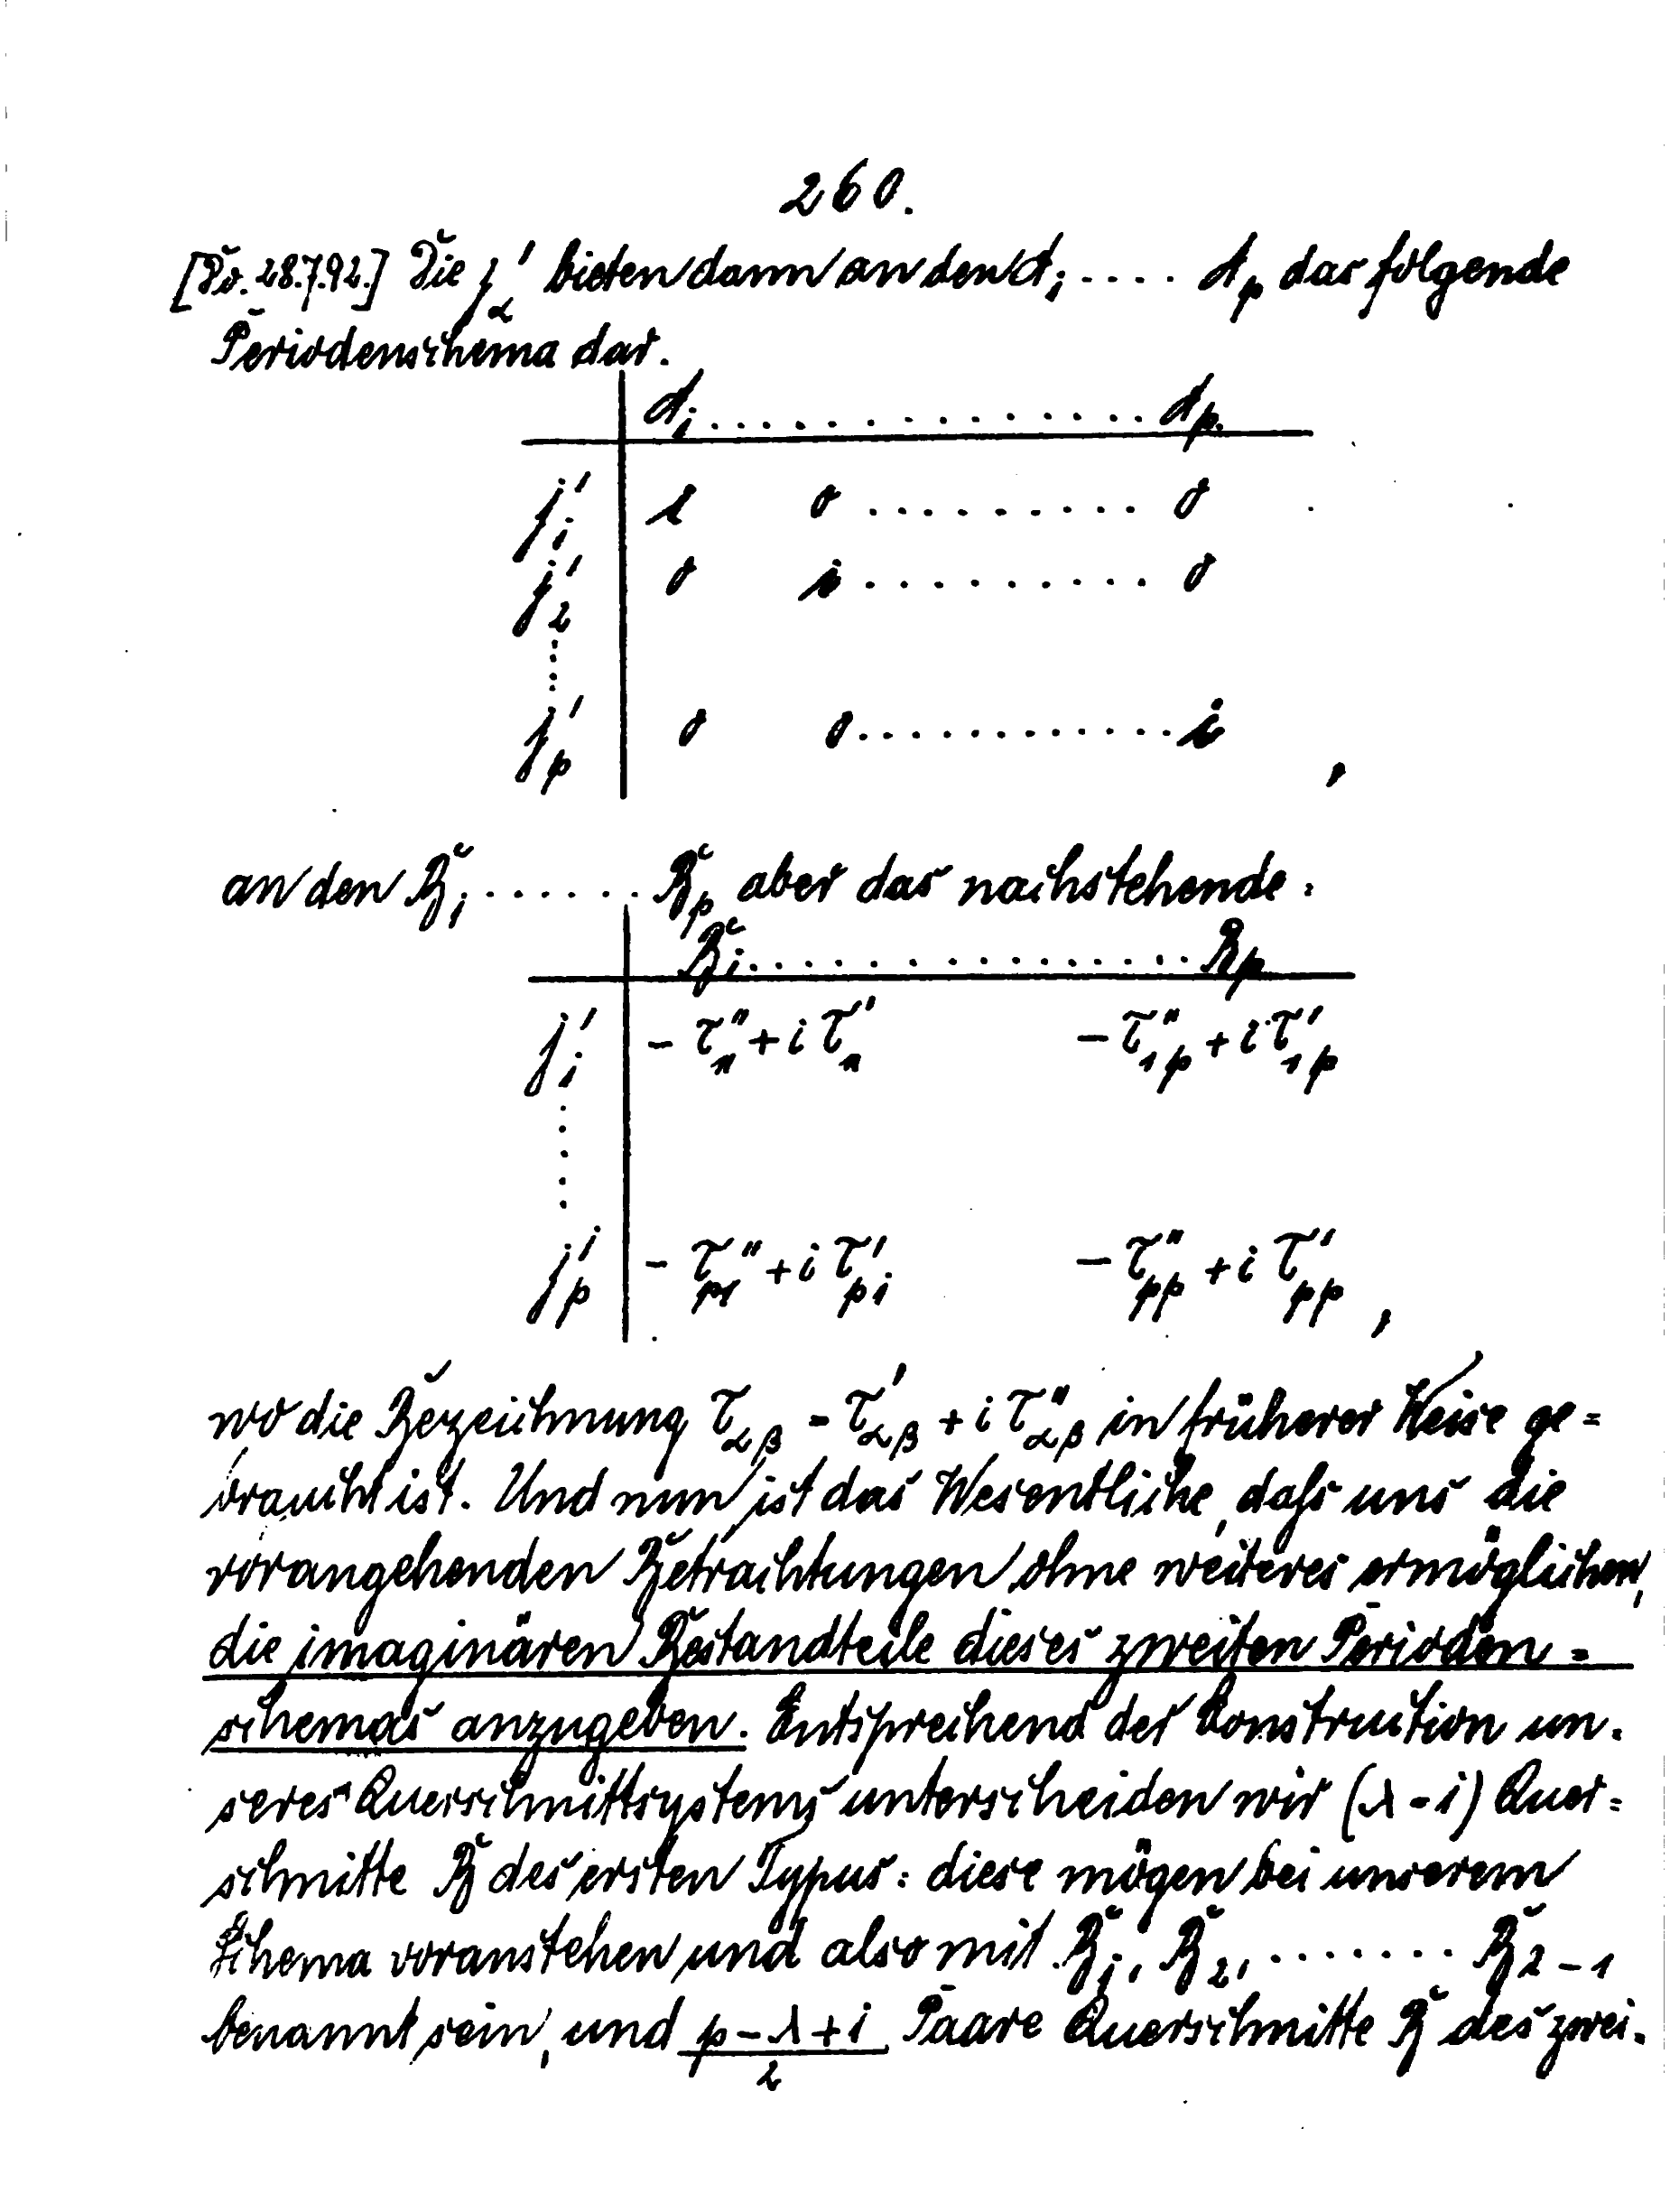 260.
[Do. 28.7.92.] Die j'α bieten dann an den A₁ .... Aₚ das folgende
Periodenschema dar.
A₁ ............... Aₚ.
j'₁ i 0 ......... 0
j'₂ 0 i .......... 0
j'ₚ 0 0 ............ i ,
an den B₁ ....... Bₚ aber das nachstehende:
B₁ ............... Bₚ
j'₁ - τ''₁₁ + i τ'₁₁ - τ''₁ₚ + i τ'₁ₚ
j'ₚ - τ''ₚ₁ + i τ'ₚ₁ - τ''ₚₚ + i τ'ₚₚ ,
wo die Bezeichnung τ_αβ = τ'_αβ + i τ''_αβ in früherer Weise ge=
braucht ist. Und nun ist das Wesentliche, dass uns die
vorangehenden Betrachtungen ohne weiteres ermöglichen,
die imaginären Bestandteile dieses zweiten Perioden=
schemas anzugeben. Entsprechend der Construction un-
seres Querschnittsystems unterscheiden wir (λ-1) Quer=
schnitte B des ersten Typus: diese mögen bei unserem
Schema voranstehen und also mit B₁, B₂, ....... B_λ-1
benannt sein, und (p-λ+1)/2 Paare Querschnitte B des zwei-